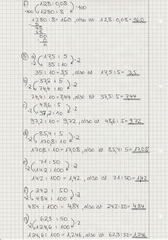 128:0,08
1280:8
1280:8=160, also ist 128:0,08=160
17,5:5
35:10
35:10=3,5, also ist 17,5:5=3,5
37,2:5
74,4:10
74,4:10=7,44, also ist 37,2:5=7,44
48,6:5
97,2:10
97,2:10=9,72, also ist 48,6:5=9,72
85,4:5
170,8:10
170,8:10=17,08, also ist 85,4:5=17,08
71:50
142:100
142:100=1,42, also ist 71:50=1,42
242:50
484:100
484:100=4,84, also ist 242:50=4,84
62,3:50
124,6:100
124,6:100=1,246, also ist 62,3:50=1,246